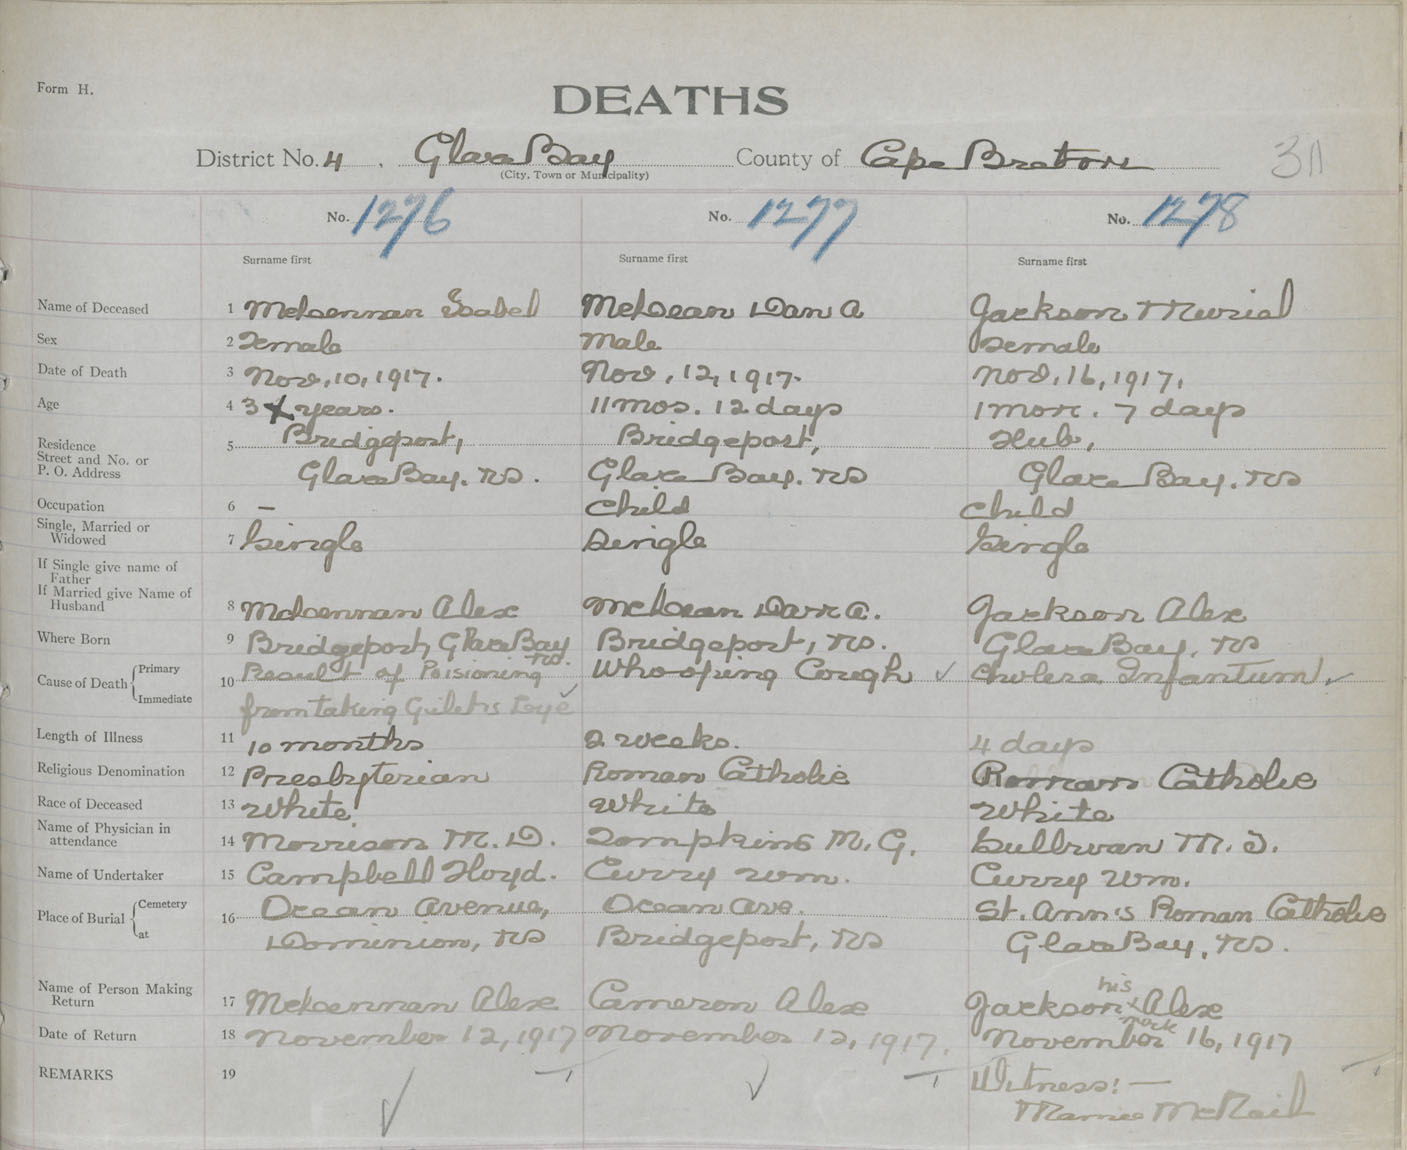 Form H.
DEATHS
District No. 4. Glace Bay County of Cape Breton 311
(City, Town or Municipality)
No. 1276 No. 1277 No. 1278
Surname first Surname first Surname first
Name of Deceased 1 McLennan Isabel McLean Dan A Jackson Murial
Sex 2 Female Male Female
Date of Death 3 Nov, 10, 1917. Nov, 12, 1917. Nov. 16, 1917.
Age 4 3 years. 11 mos. 12 days 1 mon. 7 days
Residence 5 Bridgeport, Bridgeport, Hub,
Street and No. or
P. O. Address Glace Bay. NS. Glace Bay. NS Glace Bay. NS
Occupation 6 — Child Child
Single, Married or
Widowed 7 Single Single Single
If Single give name of
Father
If Married give Name of
Husband 8 McLennan Alex McLean Dan A. Jackson Alex
Where Born 9 Bridgeport, Glace Bay NS. Bridgeport, NS. Glace Bay, NS
Cause of Death Primary 10 Result of Poisioning Whooping Cough ✓ Cholera Infantum. ✓
Immediate from taking Giletts Loye ✓
Length of Illness 11 10 months 2 weeks. 4 days
Religious Denomination 12 Presbyterian Roman Catholic Roman Catholic
Race of Deceased 13 White White White
Name of Physician in
attendance 14 Morrison M. D. Tompkins M. G. Sullivan M. J.
Name of Undertaker 15 Campbell Floyd. Curry Wm. Curry Wm.
Place of Burial Cemetery 16 Ocean Avenue, Ocean Ave. St. Ann's Roman Catholic
at Dominion, NS Bridgeport, NS Glace Bay, NS.
Name of Person Making
Return 17 McLennan Alex Cameron Alex Jackson his x mark Alex
Date of Return 18 November 12, 1917 November 12, 1917. November 16, 1917
REMARKS 19 Witness: —
McNeil